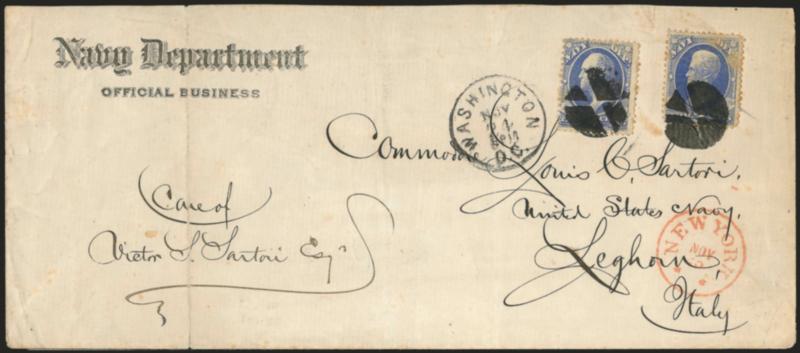 Navy Department
OFFICIAL BUSINESS
WASHINGTON
NOV
D.C.
Commodore Louis C. Sartori.
United States Navy,
Leghorn,
Italy
Care of
Victor S. Sartori Esqr
NEW YORK
NOV